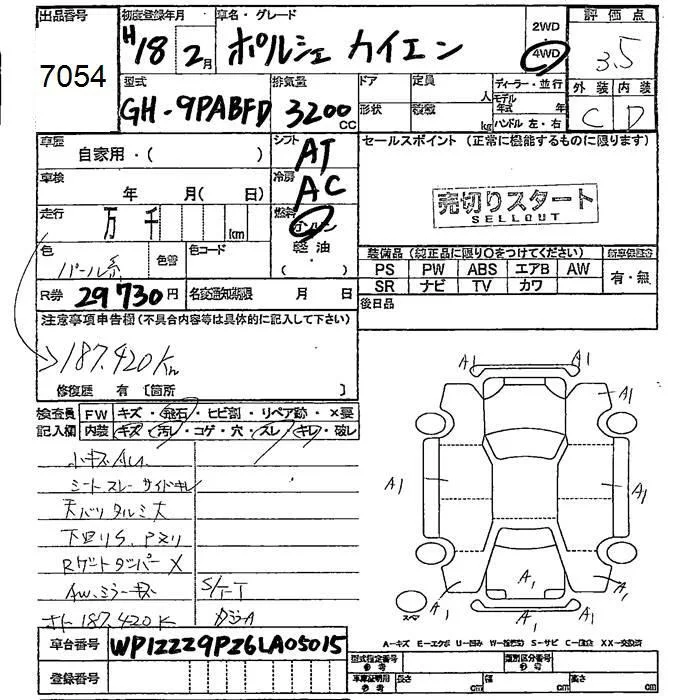 出品番号 初度登録年月 車名・グレード 2WD 評価点
7054 H18 2月 ポルシェ カイエン 4WD 3.5
型式 排気量 ドア 定員 人 ディーラー・並行 外装 内装
GH-9PABFD 3200 CC 形状 積載 kg モデル年式 年 ハンドル 左・右 C D
車歴 自家用・( ) シフト AT セールスポイント (正常に機能するものに限ります)
車検 年 月(日) 冷房 AC
売切りスタート
SELLOUT
走行 万 千 km 燃料 ガソリン
色 パール系 色替 色コード 軽油・( )
装備品 (純正品に限り○をつけてください) 新車保証書
PS PW ABS エアB AW 有・無
SR ナビ TV カワ
R券 29730円 名変通知期限 月 日 後日品
注意事項申告欄(不具合内容等は具体的に記入して下さい)
187.420Km
修復歴 有 〔箇所 〕
検査員 FW キズ・飛石・ヒビ割・リペア跡・×要
記入欄 内装 キズ・汚レ・コゲ・穴・スレ・キレ・破レ
小キズAU
シートスレ サイドキレ
天バリタルミ大
下回りS、Pスリ
RゲートダンパーX
AW、ミラーキズ S/T-T
187.420K
A1 A1
A1
A1 A1
A1
A1 A1
A1
スペア
A-キズ E-エクボ U-凹み S-サビ XX-交換済
車台番号 WP1ZZZ9PZ6LA05015
型式指定番号 参考 類別区分番号 参考
登録番号 車庫証明用 参考 長さ cm 幅 cm 高さ cm